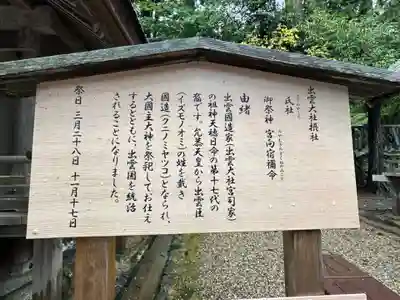 出雲大社摂社
氏社
御祭神 宮向宿禰命
由緒
出雲國造家(出雲大社宮司家)
の祖神天穂日命の第十七代の
裔です。允恭天皇から出雲臣
(イズモノオミ)の姓を戴き
國造(クニノミヤツコ)となられ、
大國主大神を祭祀してお仕え
するとともに、出雲國を統治
されることになりました。
祭日 三月二十八日 十一月十七日